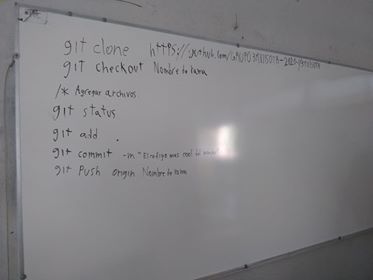 git clone https://github.com/
git checkout Nombre de rama
/* Agregar archivos
git status
git add .
git commit -m "El codigo mas cool del
git Push origin Nombre de rama